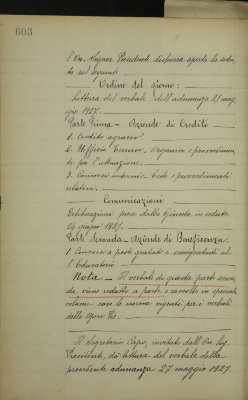 603
l'On. Signor Presidente dichiara aperta la sedu-
ta sul seguente
Ordine del giorno:
Lettura del verbale dell'adunanza 27 mag-
gio 1927.
Parte Prima - Aziende di Credito
1. Credito agrario.
2. Ufficio Tecnico, Organico e provvedimen-
ti per l'attuazione.
3. Concorsi interni. Esito e provvedimenti
relativi.
Comunicazioni
Deliberazioni prese dalla Giunta in seduta
24 giugno 1927.
Parte Seconda - Aziende di Beneficenza.
1. Concorsi a posti gratuiti e semigratuiti al-
l'Educatorio
Nota - Il verbale di questa parte secon-
da viene redatto a parte e raccolto in speciale
volume con le norme vigenti per i verbali
delle Opere Pie.
Il Segretario Capo, invitato dall'On. Sig.
Presidente, dà lettura del verbale della
precedente adunanza 27 maggio 1927.